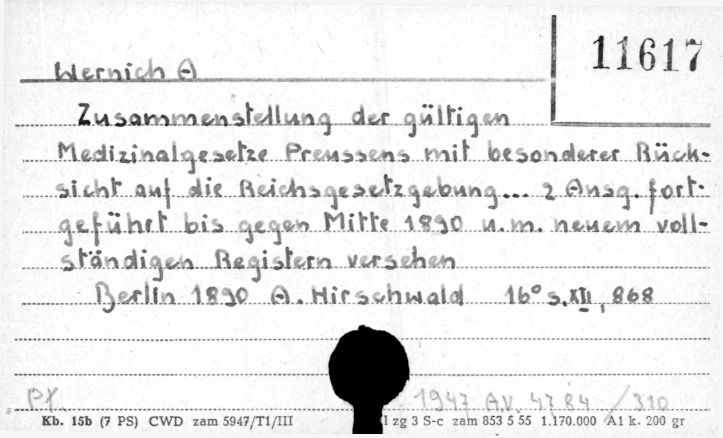 11617
Wernich A
Zusammenstellung der gültigen
Medizinalgesetze Preussens mit besonderer Rück-
sicht auf die Reichsgesetzgebung... 2 Ausg. fort-
geführt bis gegen Mitte 1890 u.m. neuem voll-
ständigen Registern versehen
Berlin 1890 A. Hirschwald 16° s.XII, 868
1947 AV. 4784 /310
Kb. 15b (7 PS) CWD zam 5947/T1/III zg 3 S-c zam 853 5 55 1.170.000 A1 k. 200 gr